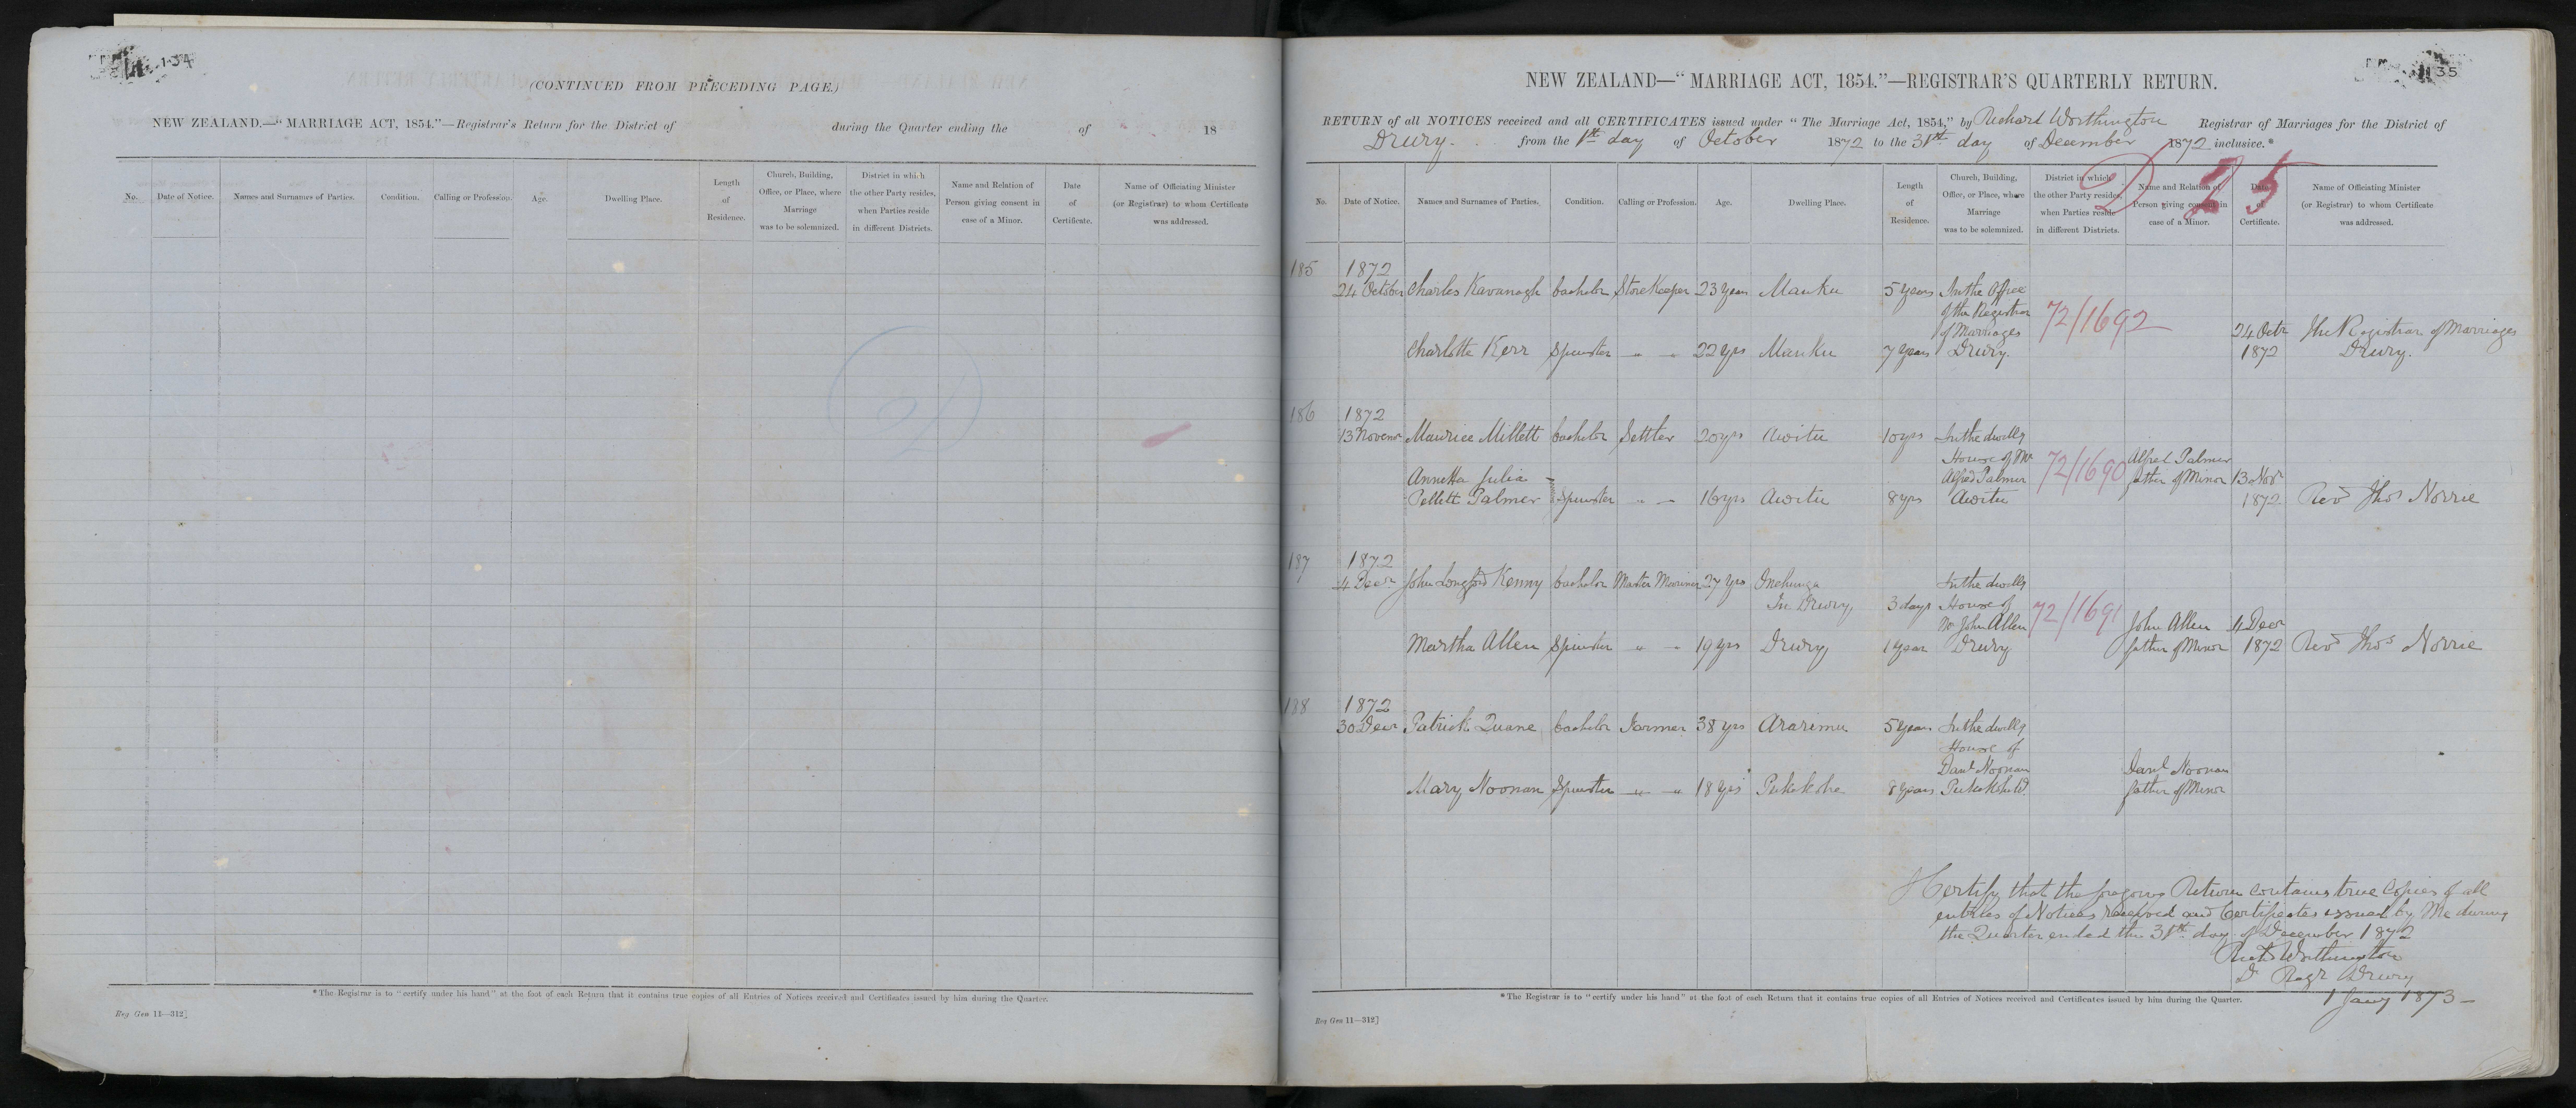 134
(CONTINUED FROM PRECEDING PAGE.)
NEW ZEALAND.—“MARRIAGE ACT, 1854.”—Registrar's Return for the District of during the Quarter ending the of 18
No.
Date of Notice.
Names and Surnames of Parties.
Condition.
Calling or Profession.
Age.
Dwelling Place.
Length
of
Residence.
Church, Building,
Office, or Place, where
Marriage
was to be solemnized.
District in which
the other Party resides,
when Parties reside
in different Districts.
Name and Relation of
Person giving consent in
case of a Minor.
Date
of
Certificate.
Name of Officiating Minister
(or Registrar) to whom Certificate
was addressed.
*The Registrar is to “certify under his hand” at the foot of each Return that it contains true copies of all Entries of Notices received and Certificates issued by him during the Quarter.
Reg Gen 11—312]
135
NEW ZEALAND—“MARRIAGE ACT, 1854.”—REGISTRAR'S QUARTERLY RETURN.
RETURN of all NOTICES received and all CERTIFICATES issued under “The Marriage Act, 1854,” by Richard Worthington Registrar of Marriages for the District of
Drury. from the 1st day of October 1872 to the 31st day of December 1872 inclusive.*
D 25
No.
Date of Notice.
Names and Surnames of Parties.
Condition.
Calling or Profession.
Age.
Dwelling Place.
Length
of
Residence.
Church, Building,
Office, or Place, where
Marriage
was to be solemnized.
District in which
the other Party resides,
when Parties reside
in different Districts.
Name and Relation of
Person giving consent in
case of a Minor.
Date
of
Certificate.
Name of Officiating Minister
(or Registrar) to whom Certificate
was addressed.
185 1872
24 October Charles Kavanagh bachelor StoreKeeper 23 years Mauku 5 years In the Office
of the Registrar
of Marriages 72/1692 24 Octr The Registrar of Marriages
Charlotte Kerr Spinster " " 22 yrs Mauku 7 years Drury. 1872 Drury.
186 1872
13 Novemr Maurice Millett bachelor Settler 20 yrs Awitu 10 yrs In the dwellg
House of Mr
Annetta Julia Alfred Palmer 72/1690 Alfred Palmer
Pellett Palmer Spinster " — 16 yrs Awitu 8 yrs Awitu father of Minor 13 Novr
1872 Revd Thos Norrie
187 1872
4 Decr John Longford Kenny bachelor Master Mariner 27 yrs Onehunga In the dwellg
In Drury, 3 days House of
Mr John Allen 72/1691 John Allen 4 Decr
Martha Allen Spinster " — 19 yrs Drury 1 year Drury father of Minor 1872 Revd Thos Norrie
188 1872
30 Decr Patrick Quane bachelor Farmer 38 yrs Araremu 5 years In the dwellg
House of
Danl Noonan Danl Noonan
Mary Noonan Spinster — " 18 yrs Pukekohe 8 years father of Minor
I Certify that the foregoing Return contains true Copies of all
entries of Notices received and Certificates issued by Me during
the Quarter ended the 31st day of December 1872
Richd Worthington
D Regr Drury
1 Jany 1873 —
*The Registrar is to “certify under his hand” at the foot of each Return that it contains true copies of all Entries of Notices received and Certificates issued by him during the Quarter.
Reg Gen 11—312]